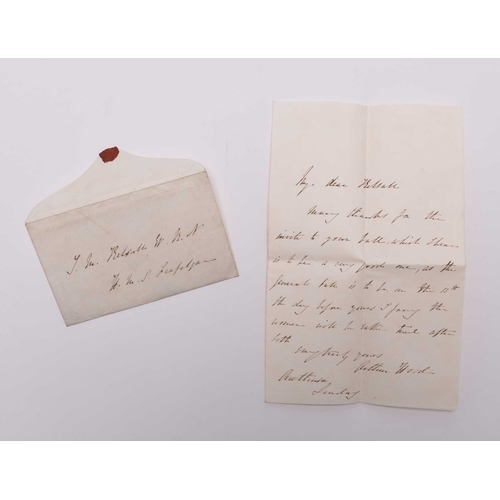 T. M. Kelsall R. N
H. M. S. Trafalgar
My dear Kelsall
Many thanks for the
invite to your ball, which I hear
is to be a very good one, as the
Generals ball is to be on the 11th
the day before yours I fancy the
women will be rather tired after
both
very truly yours
Arthur Ward
Sunday